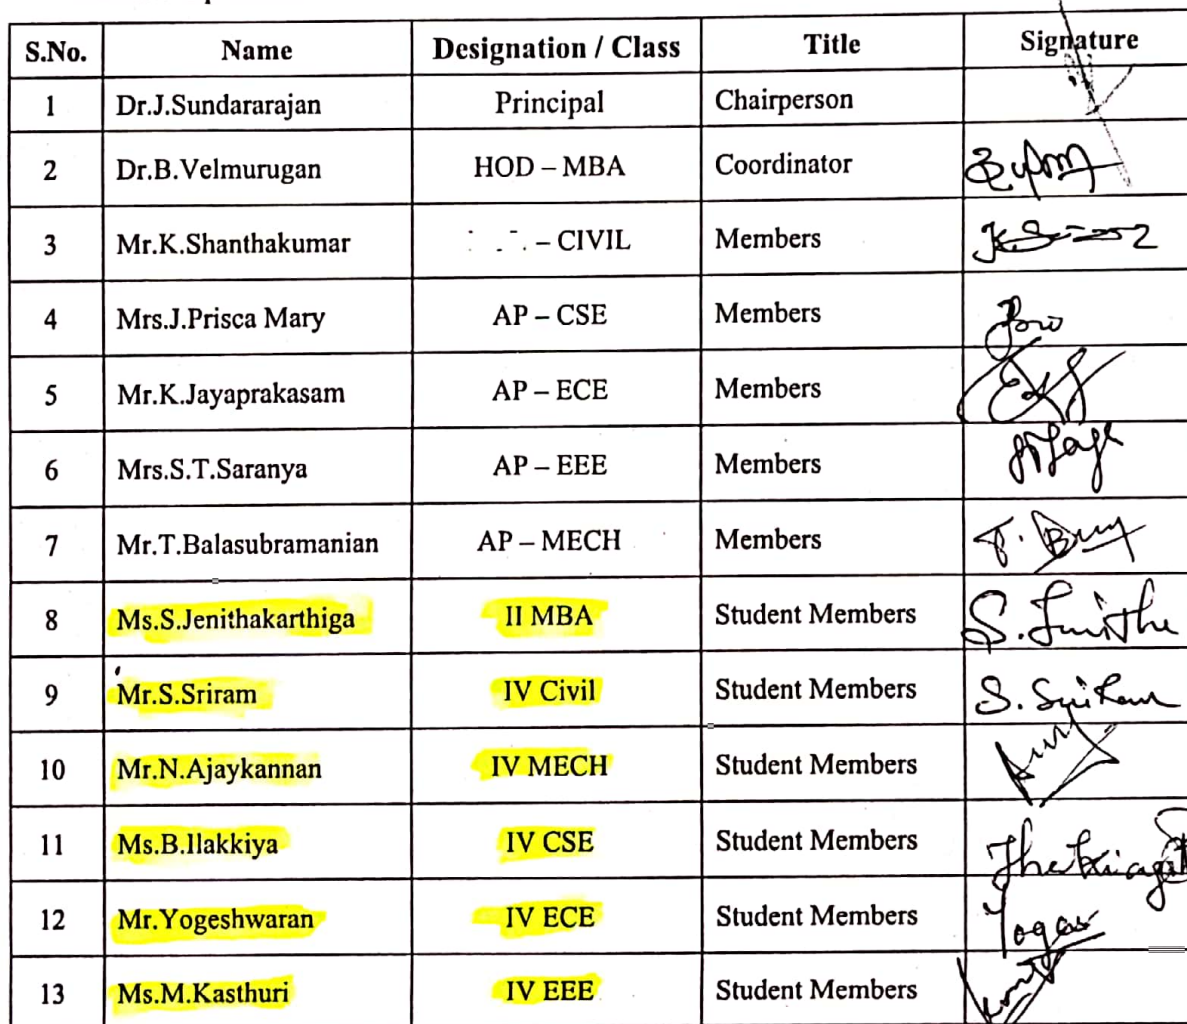 S.No. Name Designation / Class Title Signature
1 Dr.J.Sundararajan Principal Chairperson
2 Dr.B.Velmurugan HOD – MBA Coordinator
3 Mr.K.Shanthakumar – CIVIL Members
4 Mrs.J.Prisca Mary AP – CSE Members
5 Mr.K.Jayaprakasam AP – ECE Members
6 Mrs.S.T.Saranya AP – EEE Members
7 Mr.T.Balasubramanian AP – MECH Members
8 Ms.S.Jenithakarthiga II MBA Student Members
9 Mr.S.Sriram IV Civil Student Members S. Sriram
10 Mr.N.Ajaykannan IV MECH Student Members
11 Ms.B.Ilakkiya IV CSE Student Members
12 Mr.Yogeshwaran IV ECE Student Members
13 Ms.M.Kasthuri IV EEE Student Members